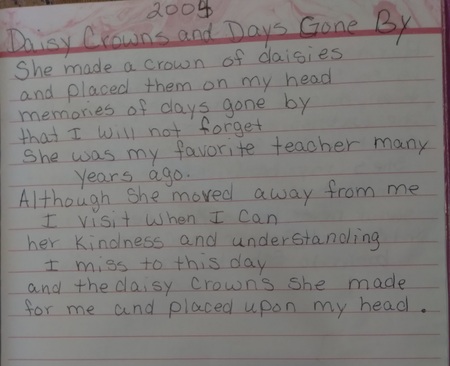 2008
Daisy Crowns and Days Gone By
She made a crown of daisies
and placed them on my head
memories of days gone by
that I will not forget
She was my favorite teacher many
years ago.
Although she moved away from me
I visit when I can
her kindness and understanding
I miss to this day
and the daisy crowns she made
for me and placed upon my head.